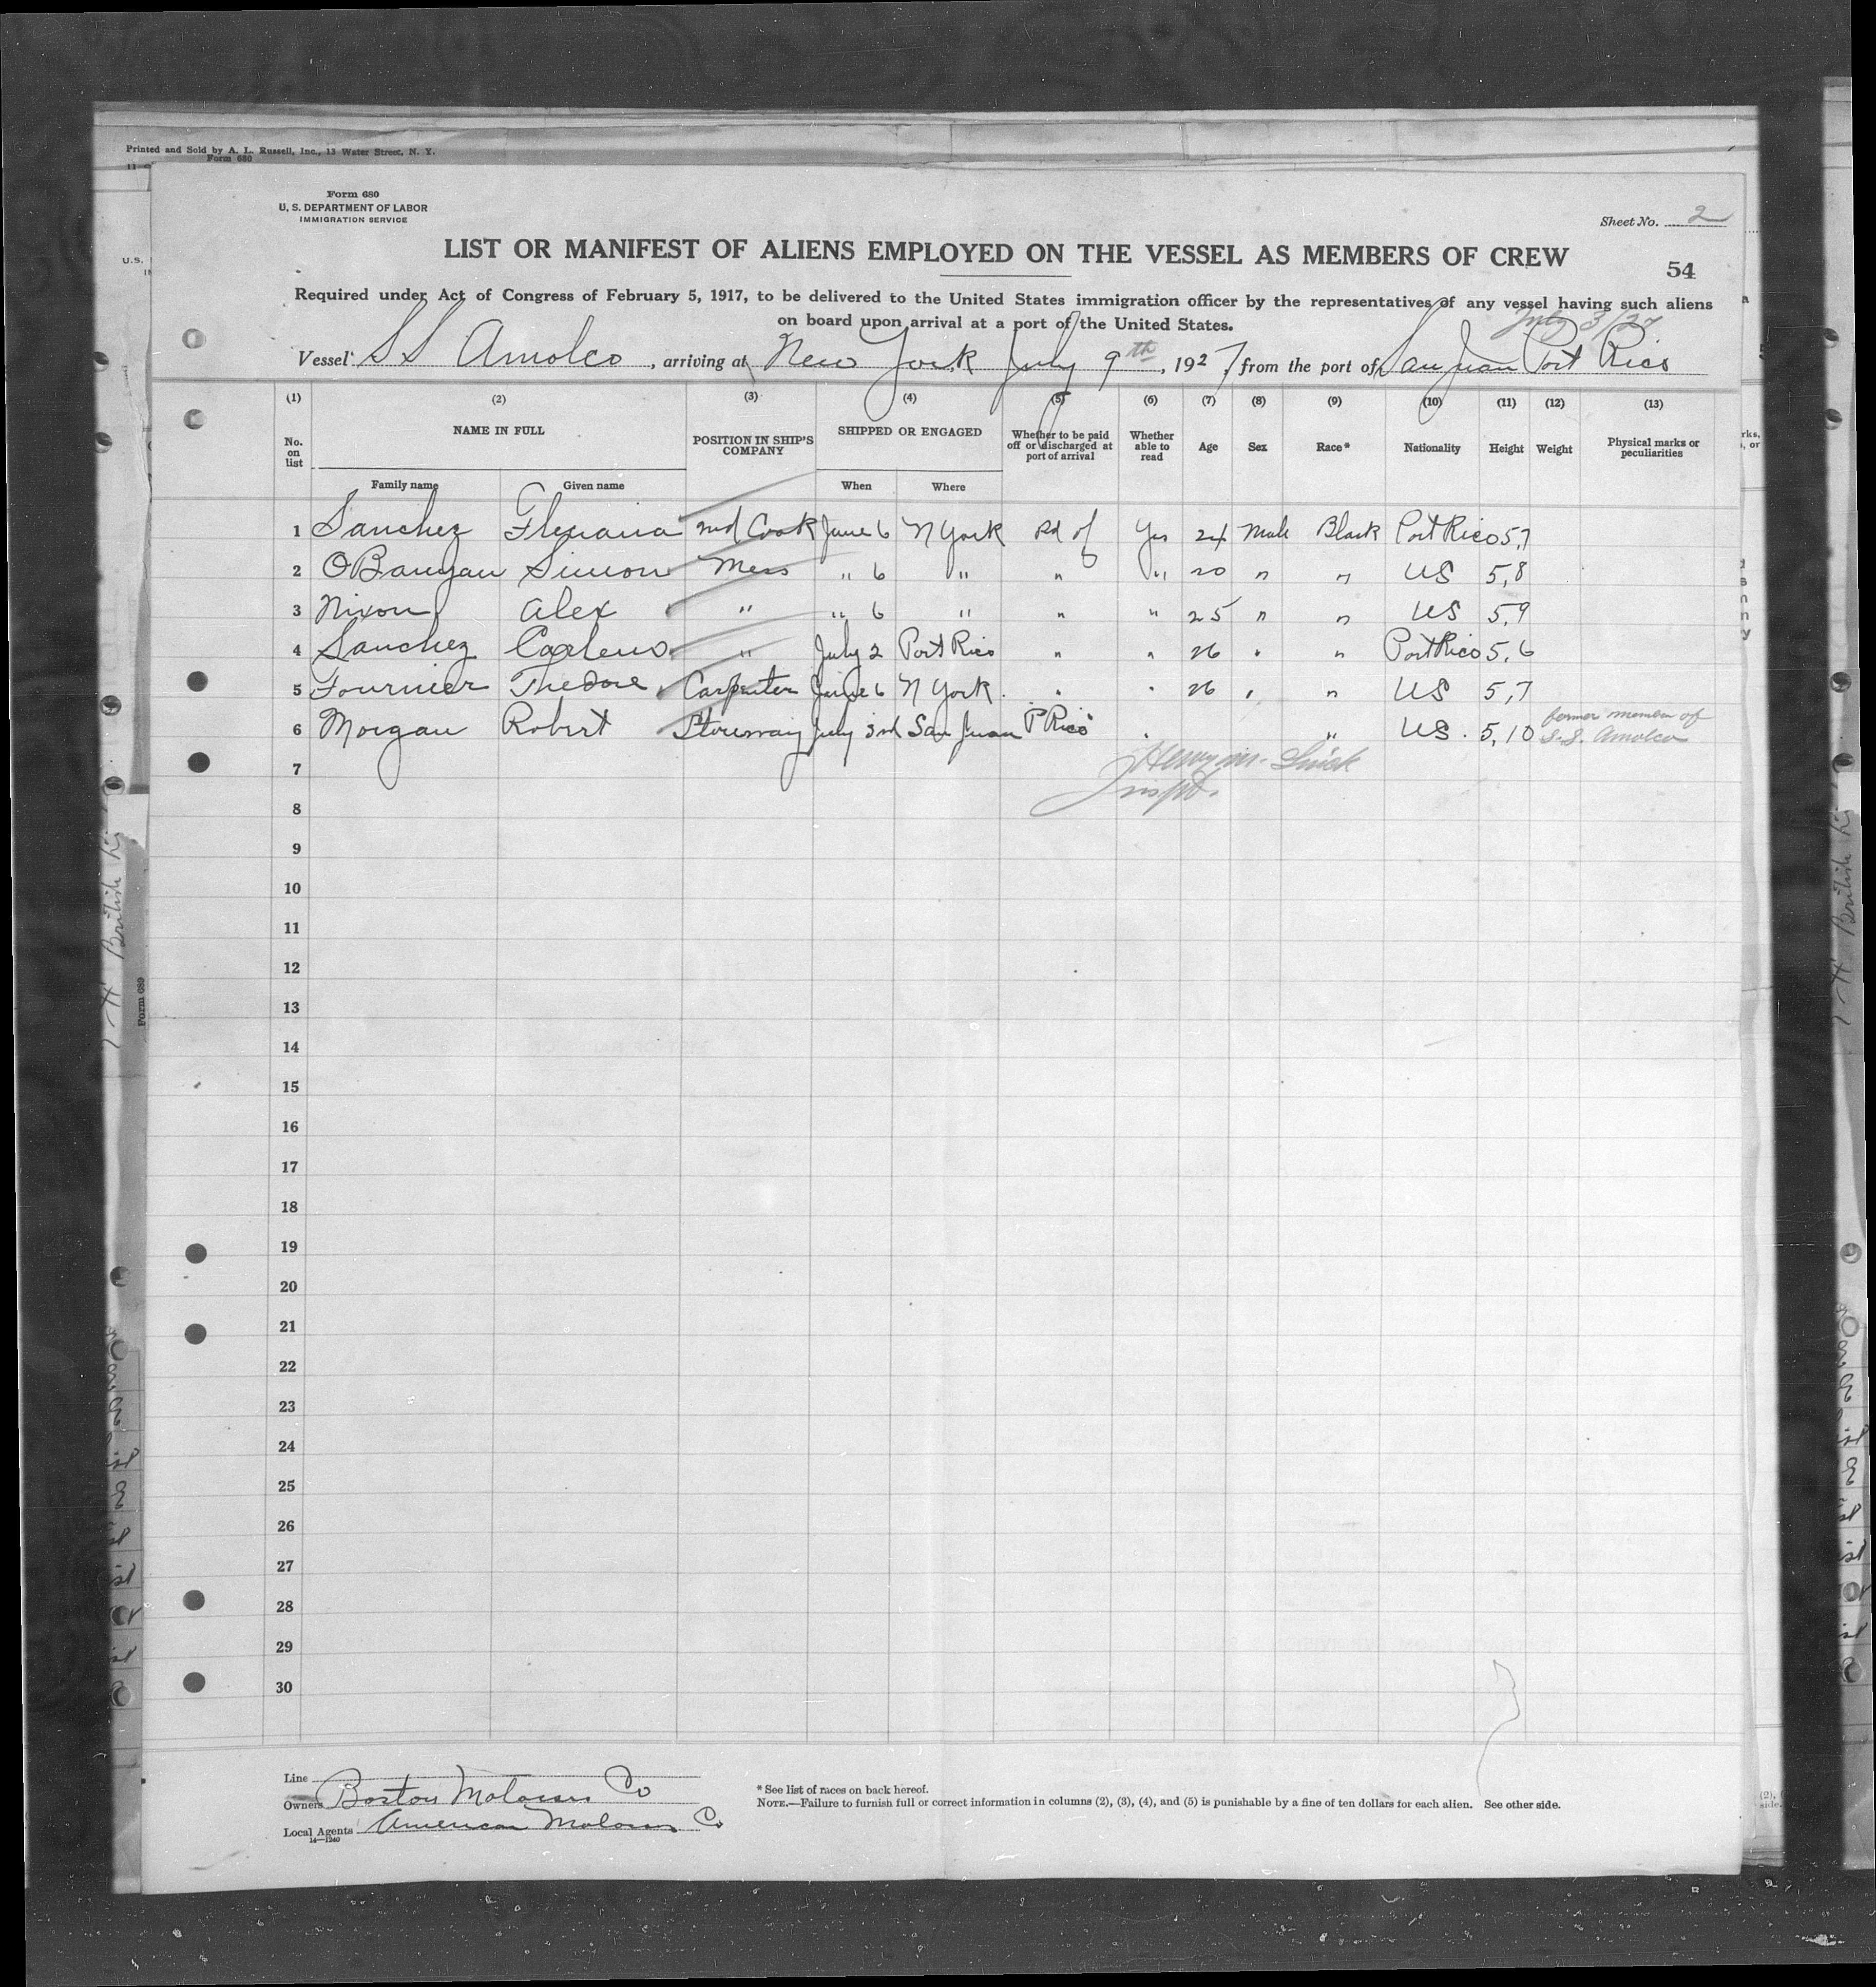 Printed and Sold by A. L. Russell, Inc., 13 Water Street, N. Y.
Form 680
Form 680
U. S. DEPARTMENT OF LABOR
IMMIGRATION SERVICE
Sheet No. 2
LIST OR MANIFEST OF ALIENS EMPLOYED ON THE VESSEL AS MEMBERS OF CREW
54
Required under Act of Congress of February 5, 1917, to be delivered to the United States immigration officer by the representatives of any vessel having such aliens
on board upon arrival at a port of the United States.
July 3/27
Vessel SS Amolco, arriving at New York July 9th, 1927, from the port of San Juan Port Rico
(1) (2) (3) (4) (5) (6) (7) (8) (9) (10) (11) (12) (13)
No. on list NAME IN FULL POSITION IN SHIP'S COMPANY SHIPPED OR ENGAGED Whether to be paid off or discharged at port of arrival Whether able to read Age Sex Race* Nationality Height Weight Physical marks or peculiarities
Family name Given name When Where
1 Sanchez 2nd Cook June 6 N York Pd of Yes 24 Male Black Port Rico 5,7
2 OBanyan Simon Mess " 6 " " " 20 " " US 5,8
3 Nixon Alex " " 6 " " " 25 " " US 5,9
4 Sanchez " July 2 Port Rico " " 26 " " Port Rico 5,6
5 Fournier Thedore Carpenter June 6 N York " " 26 " " US 5,7
6 Morgan Robert Stowaway July 3rd San Juan P Rico " " US. 5,10 former member of
S.S. Amolco
7
Henry M.
Inspt.
8
9
10
11
12
13
14
15
16
17
18
19
20
21
22
23
24
25
26
27
28
29
30
Line
Owners Boston Molasses Co
Local Agents American Molasses Co
14—1240
* See list of races on back hereof.
NOTE.—Failure to furnish full or correct information in columns (2), (3), (4), and (5) is punishable by a fine of ten dollars for each alien. See other side.
Form 689
British